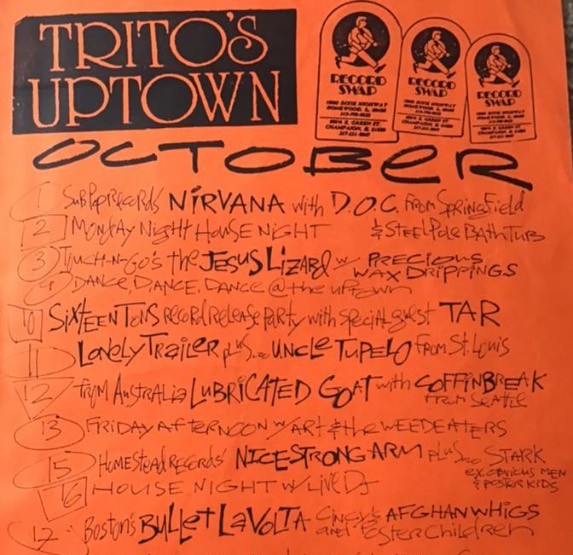 TRITO'S
UPTOWN
RECORD
SWAP
RECORD
SWAP
RECORD
SWAP
OCTOBER
1 SubPop Records' NIRVANA with D.O.C. From Springfield
2 Monday Night House Night & Steel Pole Bath Tub
3 Touch-N-Go's the JESUS LIZARD w/ PRECIOUS
WAX DRIPPINGS
9 DANCE, DANCE, DANCE @ the uptown
10 Sixteen Tons record release party with special guest TAR
11 Lonely Trailer plus... UNCLE TUPELO from St Louis
12 from Australia LUBRICATED GOAT with COFFIN BREAK
from Seattle
13 FRIDAY AFTERNOON w/ ART & the WEEDEATERS
15 Homestead Records' NICE STRONG ARM plus... STARK
ex. OBVIOUS MEN
& POSTER KIDS
16 HOUSE NIGHT w/ LIVE DJ
17 Boston's BULLET LAVOLTA Cincy's AFGHAN WHIGS
and Poster Children